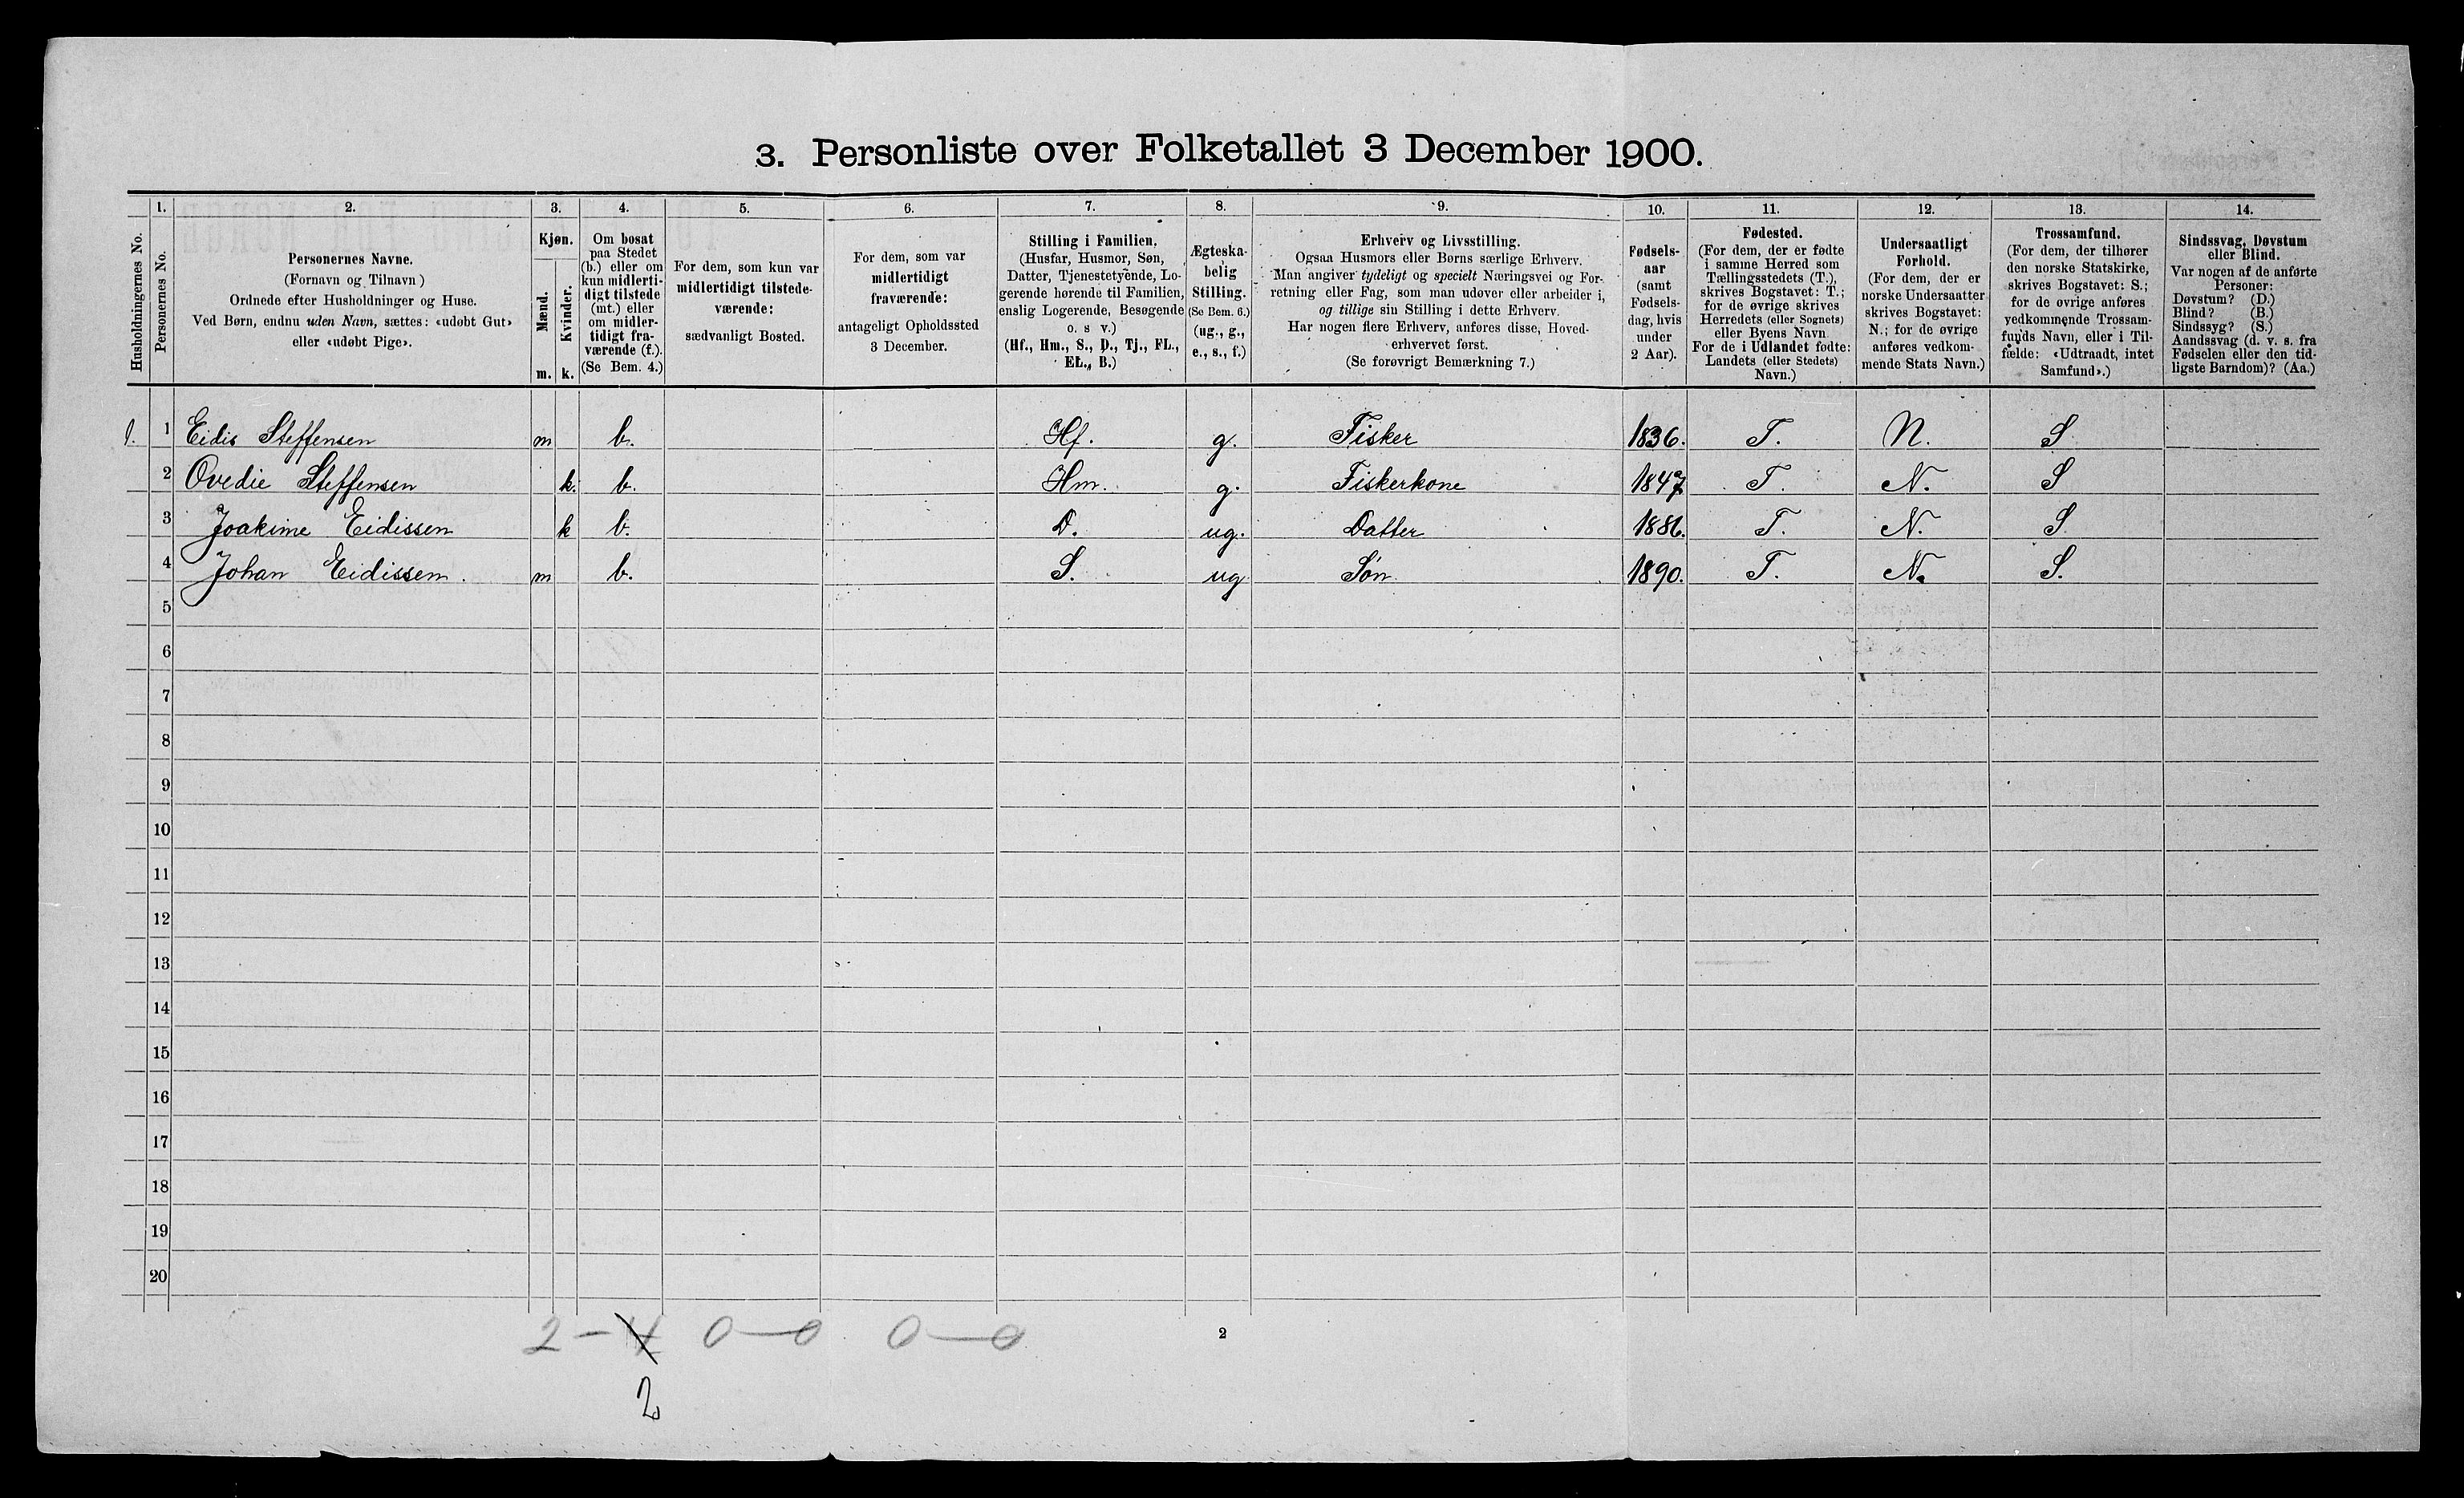 3. Personliste over Folketallet 3 December 1900.
1. 2. 3. 4. 5. 6. 7. 8. 9. 10. 11. 12. 13. 14.
Husholdningernes No.
Personernes No.
Personernes Navne.
(Fornavn og Tilnavn)
Ordnede efter Husholdninger og Huse.
Ved Børn, endnu uden Navn, sættes: «udøbt Gut»
eller «udøbt Pige».
Kjøn.
Mænd.
Kvinder.
m. k.
Om bosat
paa Stedet
(b.) eller om
kun midlerti-
digt tilstede
(mt.) eller
om midler-
tidigt fra-
værende (f.).
(Se Bem. 4.)
For dem, som kun var
midlertidigt tilstede-
værende:
sædvanligt Bosted.
For dem, som var
midlertidigt
fraværende:
antageligt Opholdssted
3 December.
Stilling i Familien.
(Husfar, Husmor, Søn,
Datter, Tjenestetyende, Lo-
gerende hørende til Familien,
enslig Logerende, Besøgende
o. s v.)
(Hf., Hm., S., D., Tj., FL.,
EL., B.)
Ægteska-
belig
Stilling.
(Se Bem. 6.)
(ug., g.,
e., s., f.)
Erhverv og Livsstilling.
Ogsaa Husmors eller Børns særlige Erhverv.
Man angiver tydeligt og specielt Næringsvei og For-
retning eller Fag, som man udøver eller arbeider i,
og tillige sin Stilling i dette Erhverv.
Har nogen flere Erhverv, anføres disse, Hoved-
erhvervet først.
(Se forøvrigt Bemærkning 7.)
Fødsels-
aar
(samt
Fødsels-
dag, hvis
under
2 Aar).
Fødested.
(For dem, der er fødte
i samme Herred som
Tællingsstedets (T.),
skrives Bogstavet: T.;
for de øvrige skrives
Herredets (eller Sognets)
eller Byens Navn
For de i Udlandet fødte:
Landets (eller Stedets)
Navn.)
Undersaatligt
Forhold.
(For dem, der er
norske Undersaatter
skrives Bogstavet:
N.; for de øvrige
anføres vedkom-
mende Stats Navn.)
Trossamfund.
(For dem, der tilhører
den norske Statskirke,
skrives Bogstavet: S.;
for de øvrige anføres
vedkommende Trossam-
funds Navn, eller i Til-
fælde: «Udtraadt, intet
Samfund».)
Sindssvag, Døvstum
eller Blind.
Var nogen af de anførte
Personer:
Døvstum? (D.)
Blind? (B.)
Sindssyg? (S.)
Aandssvag (d. v. s. fra
Fødselen eller den tid-
ligste Barndom)? (Aa.)
1. 1 Eidis Steffensen m b. Hf. g. Fisker 1836. T. N. S
2 Ovedie Steffensen k. b. Hm. g. Fiskerkone 1847 T. N. S
3 Joakime Eidissen k b. D. ug. Datter 1886. T. N. S
4 Johan Eidissen. m b. S. ug Søn 1890. T. N. S.
5
6
7
8
9
10
11
12
13
14
15
16
17
18
19
20
2 – 4 0 – 0 0 – 0 2
2